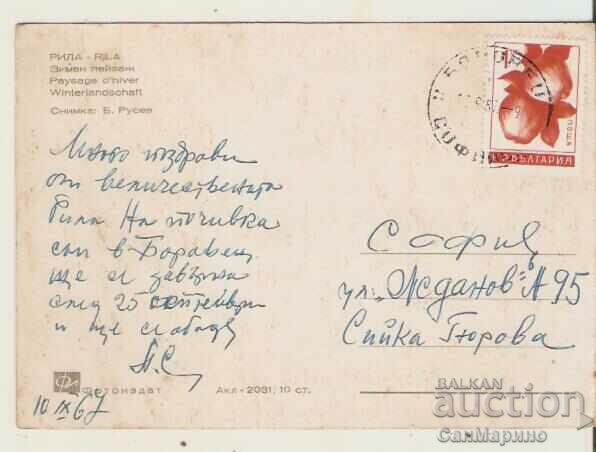 РИЛА - RILA
Зимен пейзаж
Paysage d'hiver
Winterlandschaft
Снимка: Б. Русев
1
ПОЩА
БЪЛГАРИЯ
Много поздрави
от величествената
Рила На почивка
съм в Боровец
ще се завърна
след 25 септември
и ще се обадя
София
ул. "Жданов" № 95
Сийка Гюрова
Фотоиздат
Акл - 2031, 10 ст.
10 IX 67
BALKAN
auction
СанМарино